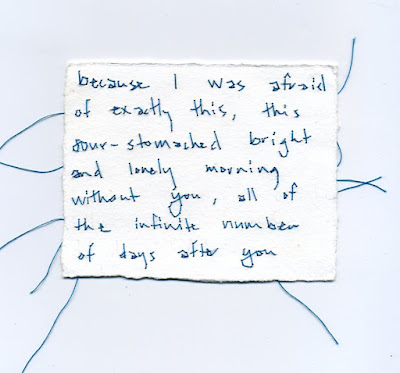 because I was afraid
of exactly this, this
sour-stomached bright
and lonely morning
without you, all of
the infinite number
of days after you